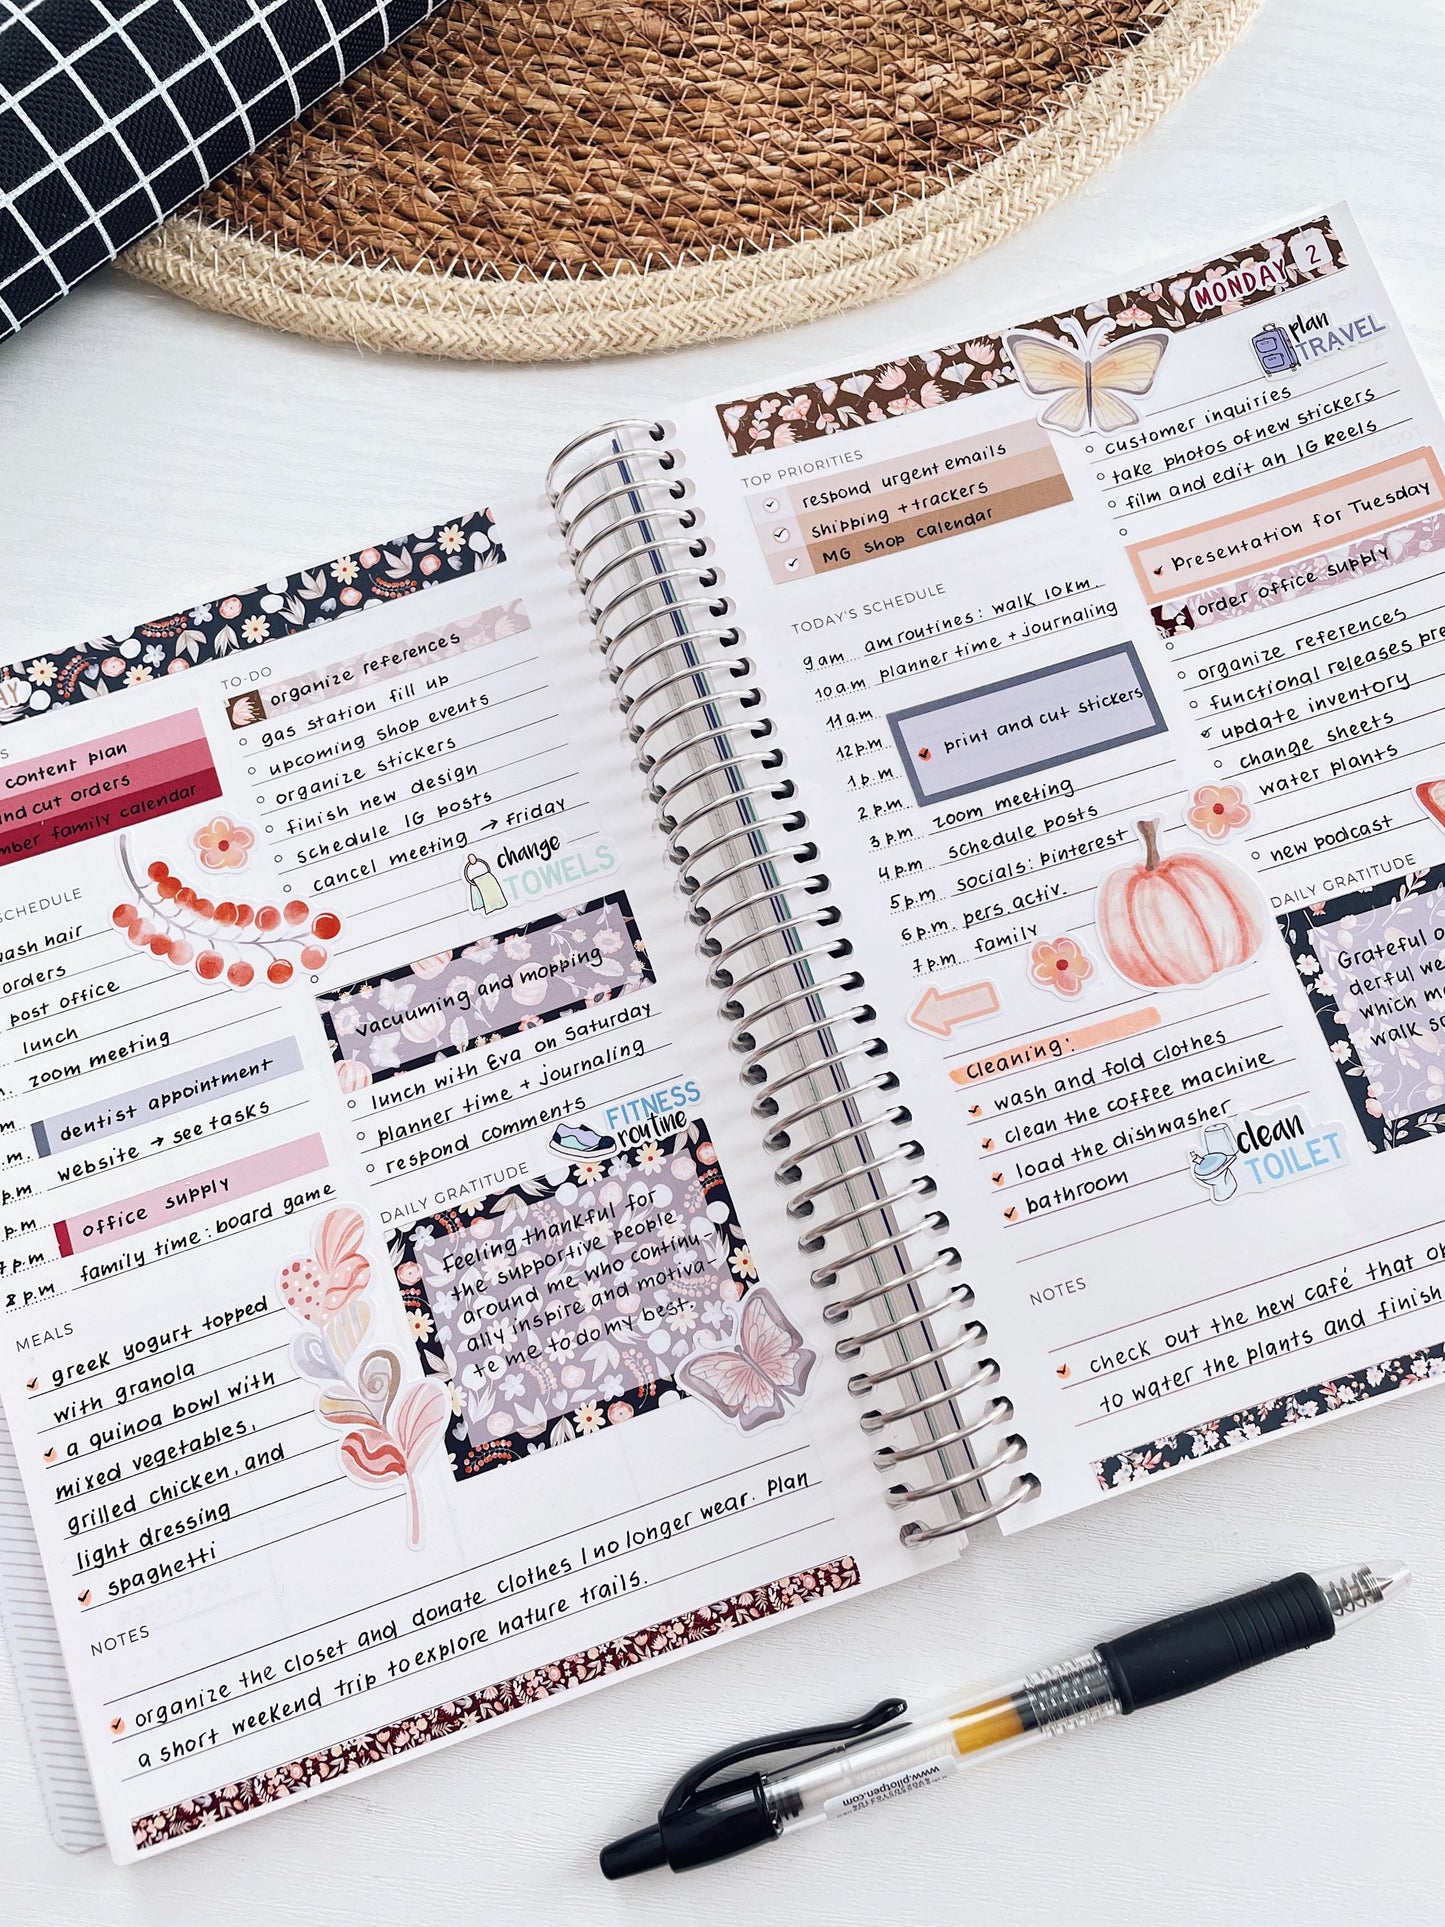 AY
TO-DO
organize references
gas station fill up
upcoming shop events
organize stickers
finish new design
schedule IG posts
cancel meeting → friday
change
TOWELS
content plan
and cut orders
mber family calendar
SCHEDULE
ash hair
orders
post office
lunch
zoom meeting
dentist appointment
website → see tasks
office supply
family time: board game
8 p.m.
vacuuming and mopping
lunch with Eva on Saturday
planner time + journaling
respond comments
FITNESS
routine
DAILY GRATITUDE
Feeling thankful for
the supportive people
around me who continu-
ally inspire and motiva-
te me to do my best.
MEALS
greek yogurt topped
with granola
a quinoa bowl with
mixed vegetables,
grilled chicken, and
light dressing
spaghetti
NOTES
organize the closet and donate clothes I no longer wear. Plan
a short weekend trip to explore nature trails.
MONDAY 2
plan
TRAVEL
TOP PRIORITIES
respond urgent emails
shipping + trackers
MG shop calendar
TODAY'S SCHEDULE
9 am am routines: walk 10km.
10 a.m planner time + journaling
11 a.m
12 p.m print and cut stickers
1 p.m
2 p.m
3 p.m zoom meeting
4 p.m schedule posts
5 p.m socials: pinterest
6 p.m. pers. activ.
7 p.m family
customer inquiries
take photos of new stickers
film and edit an IG Reels
Presentation for Tuesday
order office supply
organize references
functional releases pre
update inventory
change sheets
water plants
new podcast
DAILY GRATITUDE
Grateful o
derful we
which m
walk s
cleaning:
wash and fold clothes
clean the coffee machine
load the dishwasher
bathroom
clean
TOILET
NOTES
check out the new café that o
to water the plants and finish
www.pilotpen.com